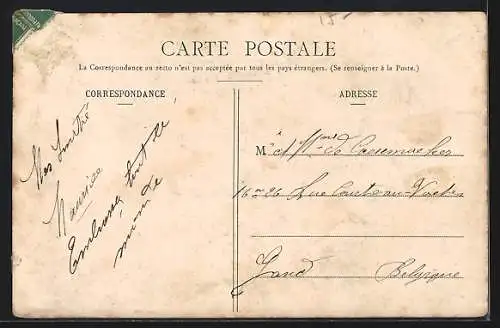 15-
CARTE POSTALE
La Correspondance au recto n'est pas acceptée par tous les pays étrangers. (Se renseigner à la Poste.)
CORRESPONDANCE
ADRESSE
Maurice
Embrasse tout le
monde
à
M et Mme de
26 Rue
Gand Belgique